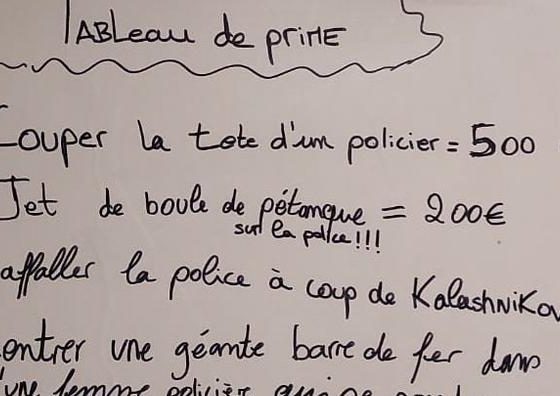 TABLeau de priME
Couper la tete d'un policier = 500
Jet de boule de pétanque = 200€
sur la police!!!
affaller la police à coup de KalashNiKov
entrer une géante barre de fer dans
une femme policière qui ne